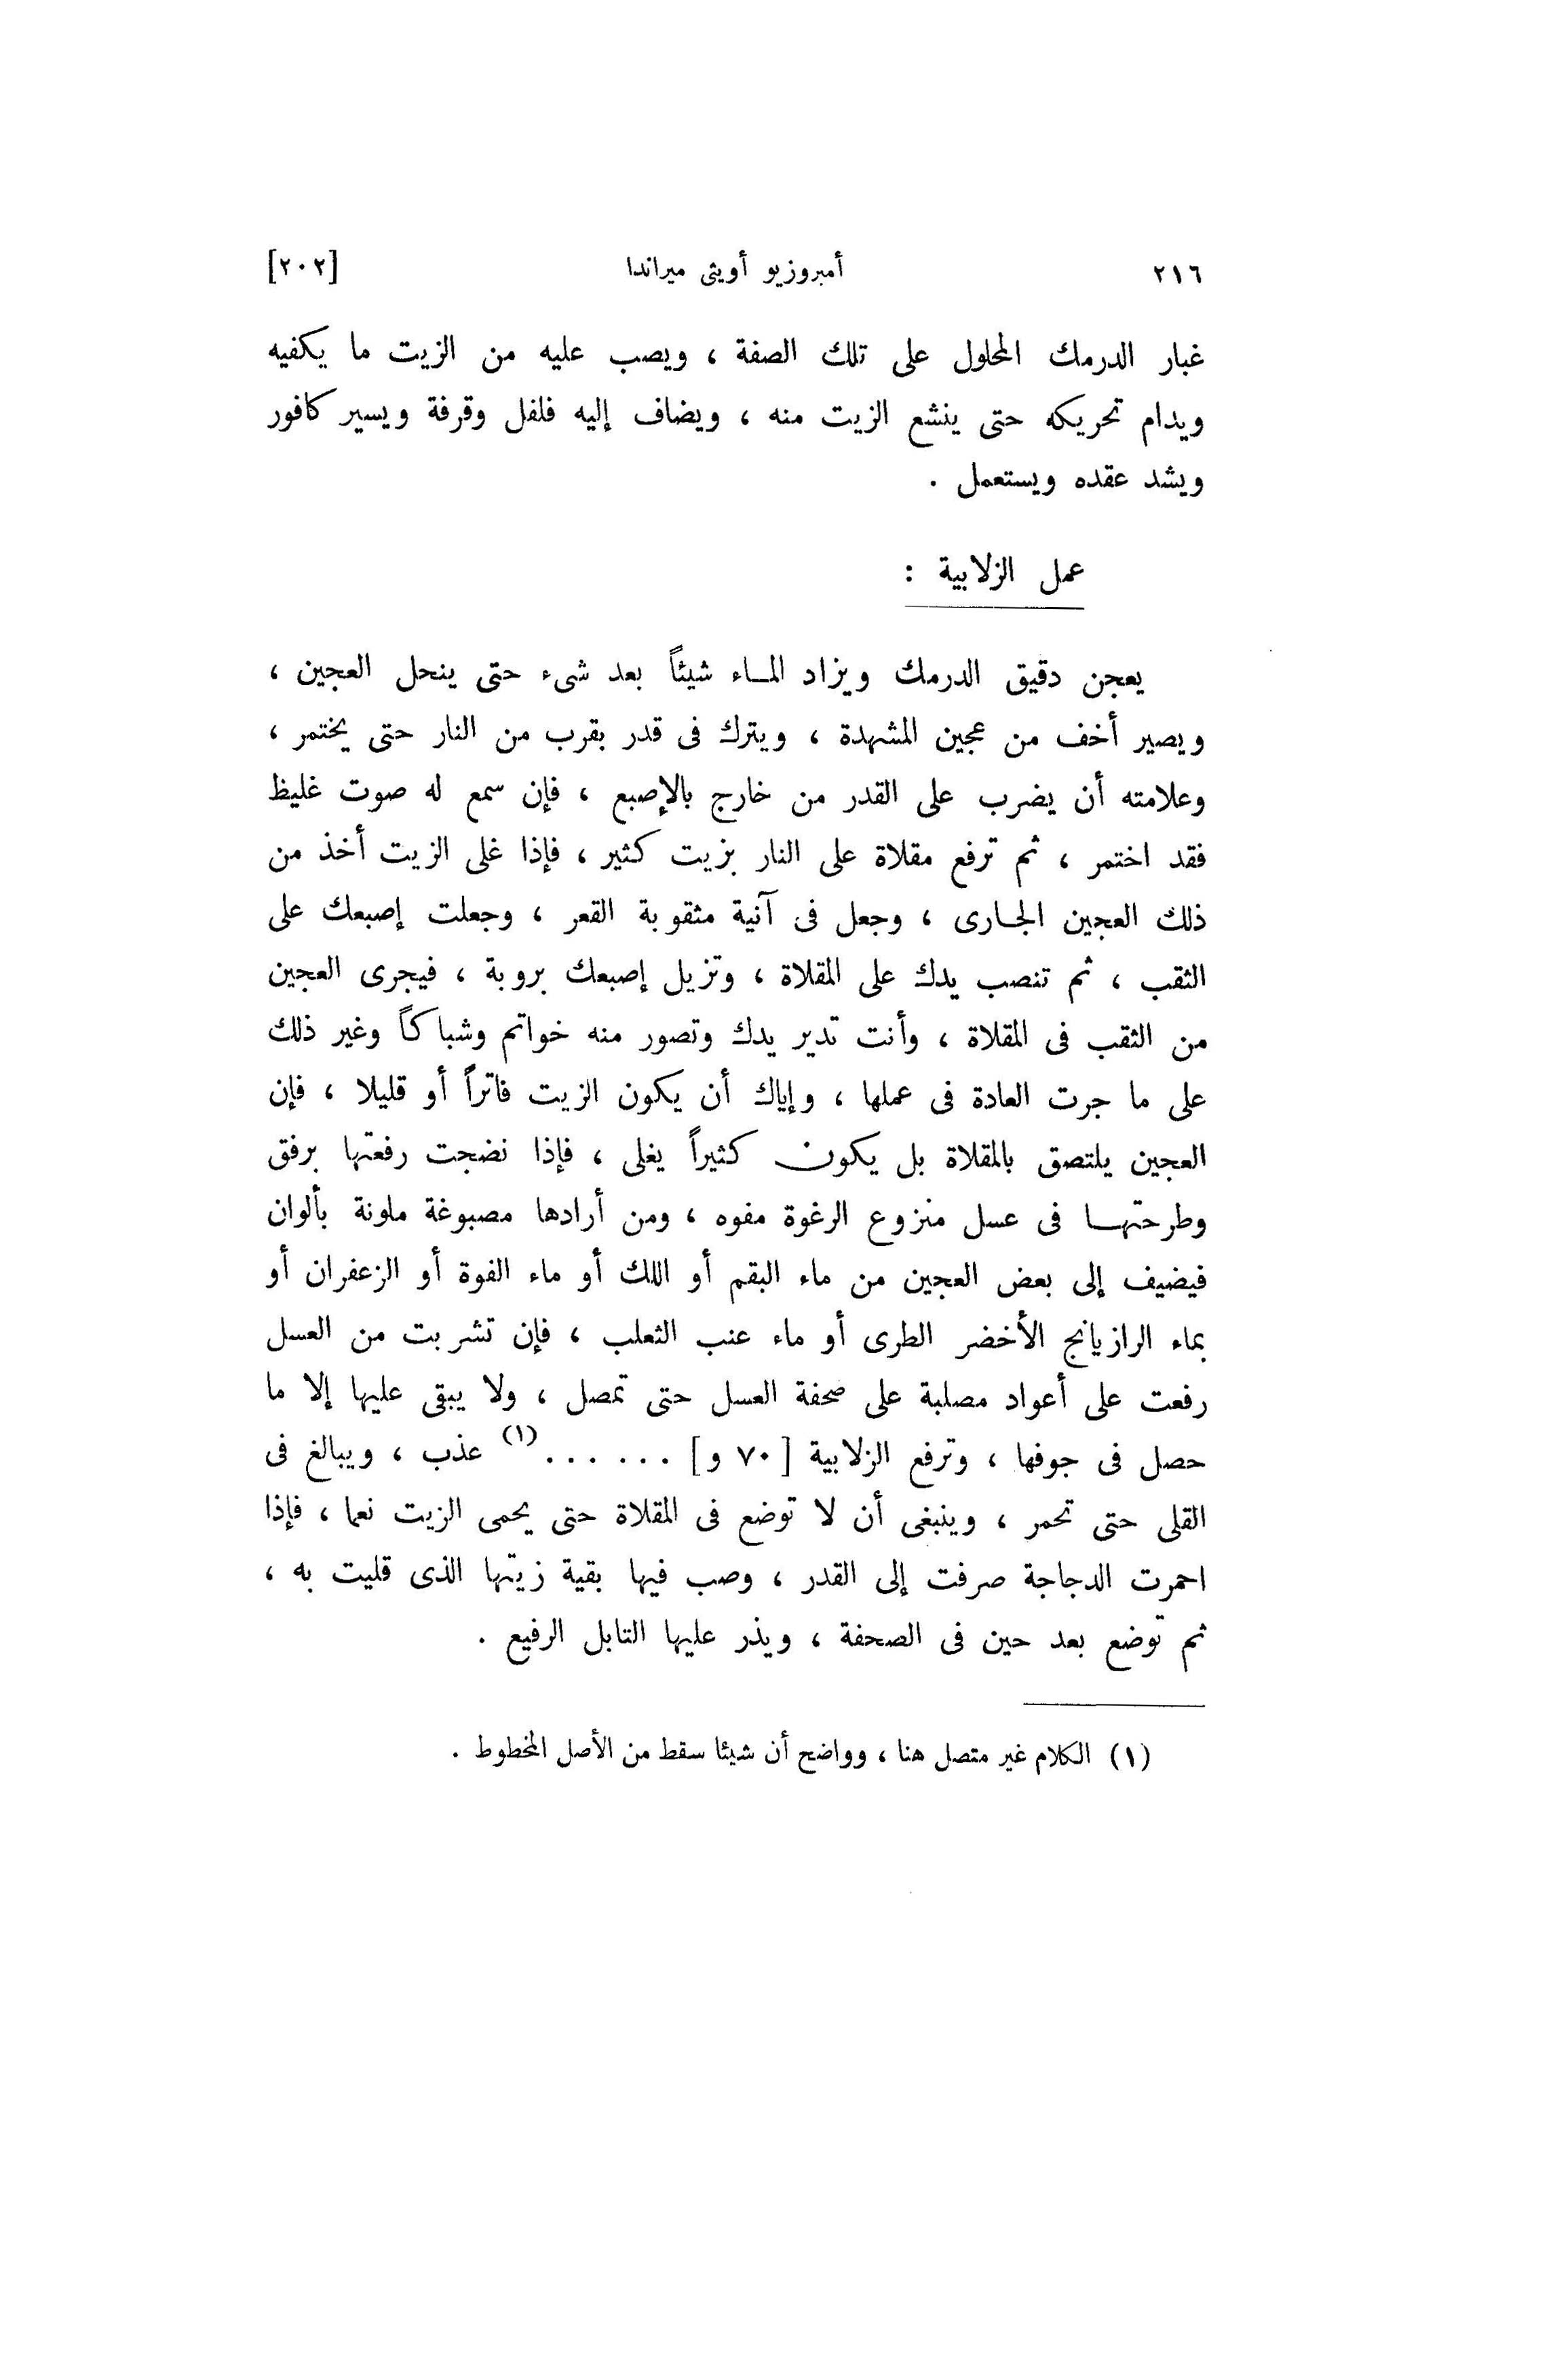 ٢١٦ أمبروزيو أويثى ميراندا [٢٠٢]
غبار الدرمك المحلول على تلك الصفة ، ويصب عليه من الزيت ما يكفيه
ويدام تحريكه حتى ينشع الزيت منه ، ويضاف إليه فلفل وقرفة ويسير كافور
ويشد عقده ويستعمل .
عمل الزلابية :
يعجن دقيق الدرمك ويزاد المـاء شيئاً بعد شىء حتى ينحل العجين ،
ويصير أخف من عجين المشهدة ، ويترك فى قدر بقرب من النار حتى يختمر ،
وعلامته أن يضرب على القدر من خارج بالإصبع ، فإن سمع له صوت غليظ
فقد اختمر ، ثم ترفع مقلاة على النار بزيت كثير ، فإذا غلى الزيت أخذ من
ذلك العجين الجـارى ، وجعل فى آنية مثقوبة القعر ، وجعلت إصبعك على
الثقب ، ثم تنصب يدك على المقلاة ، وتزيل إصبعك بروبة ، فيجرى العجين
من الثقب فى المقلاة ، وأنت تدير يدك وتصور منه خواتم وشباكاً وغير ذلك
على ما جرت العادة فى عملها ، وإياك أن يكون الزيت فاتراً أو قليلا ، فإن
العجين يلتصق بالمقلاة بل يكون كثيراً يغلى ، فإذا نضجت رفعتها برفق
وطرحتهـا فى عسل منزوع الرغوة مفوه ، ومن أرادها مصبوغة ملونة بألوان
فيضيف إلى بعض العجين من ماء البقم أو اللك أو ماء الفوة أو الزعفران أو
بماء الرازيانج الأخضر الطرى أو ماء عنب الثعلب ، فإن تشربت من العسل
رفعت على أعواد مصلبة على صحفة العسل حتى تمصل ، ولا يبقى عليها إلا ما
حصل فى جوفها ، وترفع الزلابية [ ٧٠ و ] . . . . . . (١) عذب ، ويبالغ فى
القلى حتى تحمر ، وينبغى أن لا توضع فى المقلاة حتى يحمى الزيت نعما ، فإذا
احمرت الدجاجة صرفت إلى القدر ، وصب فيها بقية زيتها الذى قليت به ،
ثم توضع بعد حين فى الصحفة ، ويذر عليها التابل الرفيع .
(١) الكلام غير متصل هنا ، وواضح أن شيئا سقط من الأصل المخطوط .